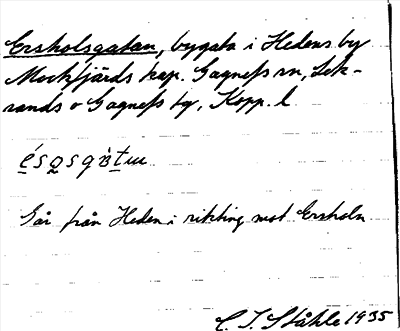 Ersholsgatan, bygata i Hedens by
Mockfjärds kap. Gagnefs sn, Lek-
sands o Gagnefs tg, Kopp. l.
Går från Heden i riktning mot Ersholn
C. I. Ståhle 1935